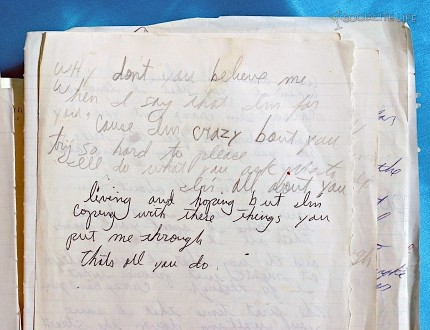 Why don't you believe me
When I say that I'm for
you, 'cause I'm crazy bout you
try so hard to please
I'll do what you ask what's
I'm all about you
living and hoping but I'm
coping with these things you
put me through
Thats all you do.
the